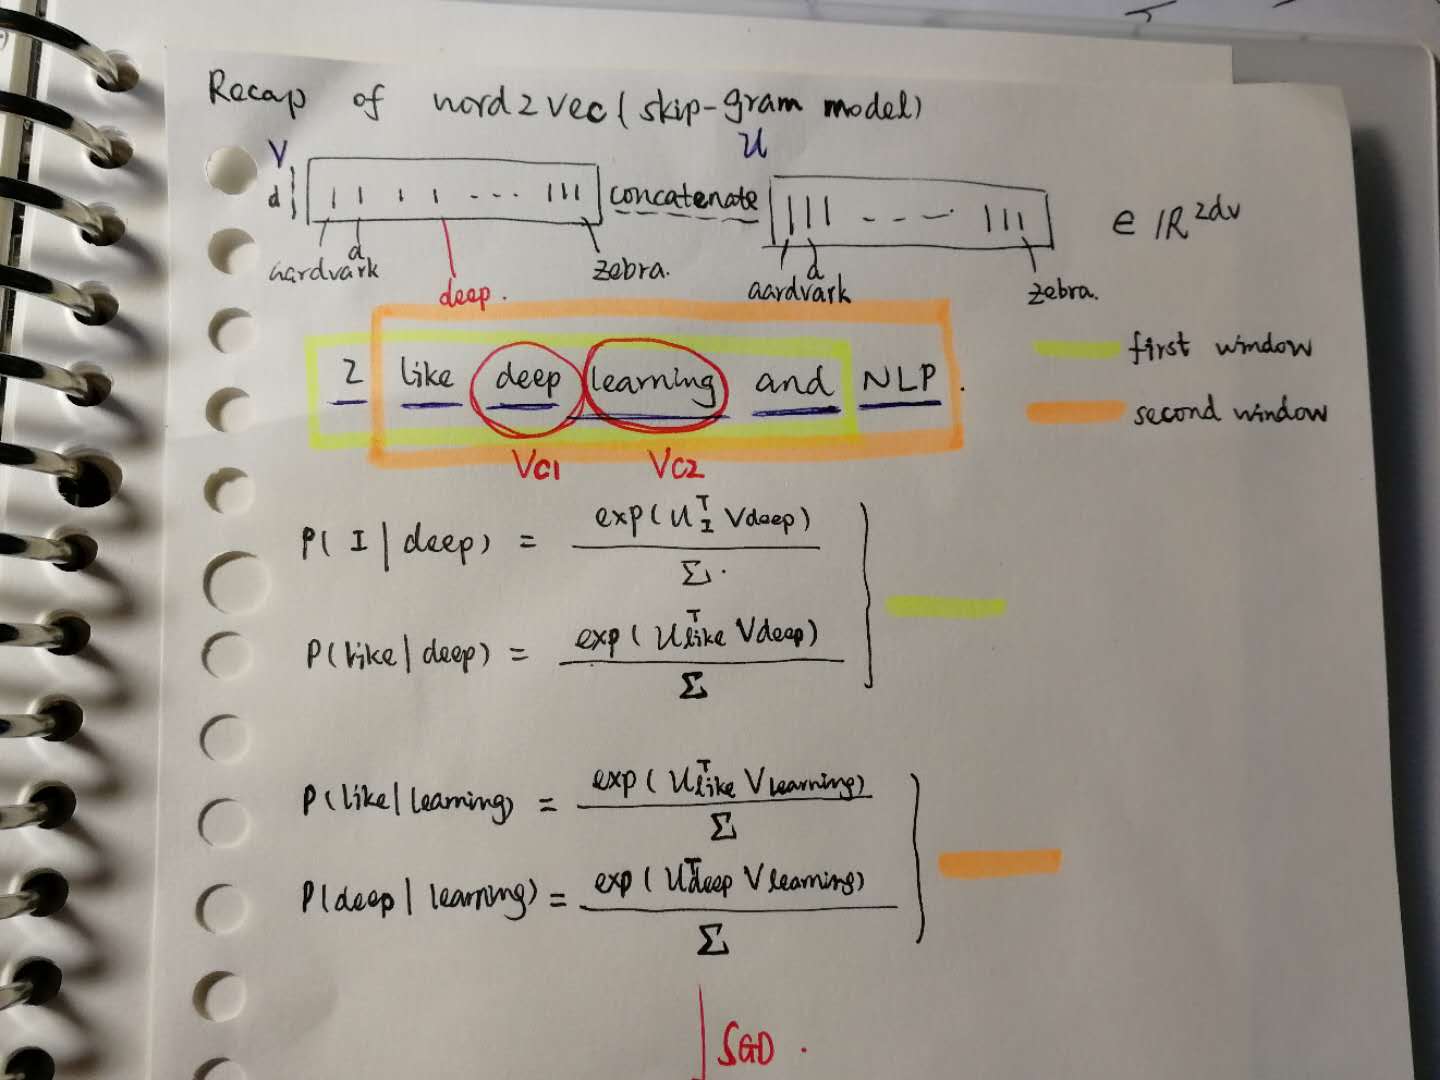 Recap of word2vec (skip-gram model)
V U
d concatenate ∈ ℝ^2dv
aardvark a deep. zebra. aardvark a zebra.
I like deep learning and NLP.
first window
second window
Vc1 Vc2
P(I | deep) = exp(U_I^T Vdeep) / Σ.
P(like | deep) = exp(U_like^T Vdeep) / Σ
P(like | learning) = exp(U_like^T Vlearning) / Σ
P(deep | learning) = exp(U_deep^T Vlearning) / Σ
SGD.